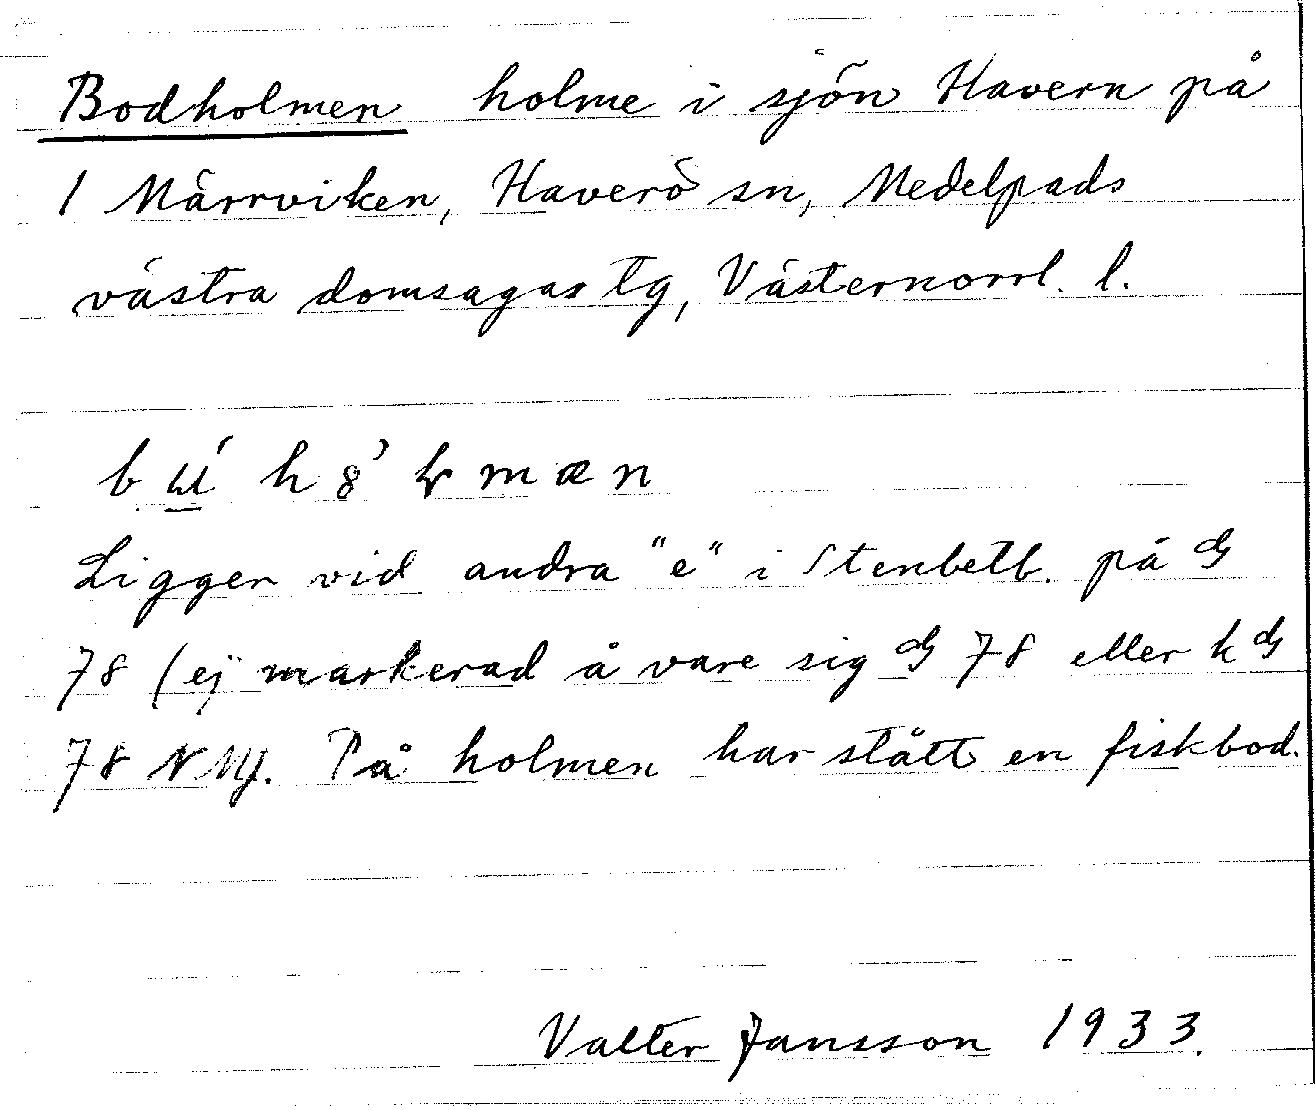 Bodholmen holme i sjön Havern på
1 Märrviken, Haverö sn, Medelpads
västra domsagas tg, Västernorrl. l.
bú̲ h8̓ mæn
Ligger vid andra "e" i Stenbetb. på G
78 (ej markerad å vare sig G 78 eller k G
78 NW). På holmen har stått en fiskbod.
Valter Jansson 1933.